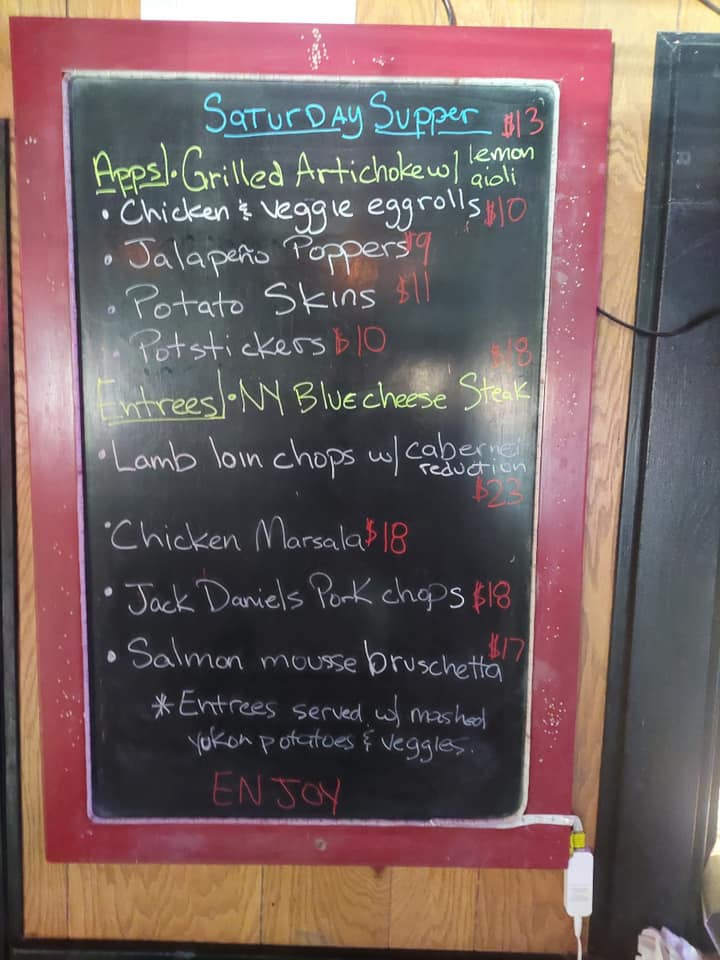 Saturday Supper $13
Apps • Grilled Artichoke w/ lemon aioli
• Chicken & veggie eggrolls $10
• Jalapeño Poppers $9
• Potato Skins $11
• Potstickers $10
$18
Entrees • NY Blue cheese Steak
• Lamb loin chops w/ cabernet
reduction
$23
• Chicken Marsala $18
• Jack Daniels Pork chops $18
$17
• Salmon mousse bruschetta
* Entrees served w/ mashed
yukon potatoes & veggies.
ENJOY